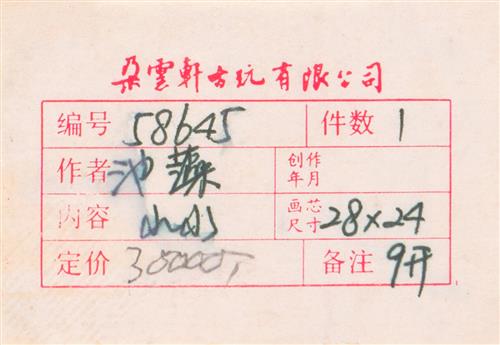 朵雲軒古玩有限公司
编号 58645 件数 1
作者 沈 创作年月
内容 山水 画芯尺寸 28×24
定价 30000 备注 9开